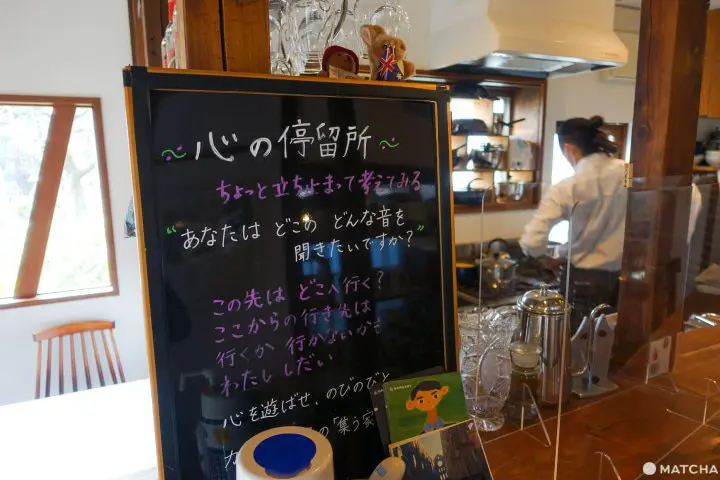 ~心の停留所~
ちょっと立ち止まって考えてみる
"あなたは どこの どんな音を
聞きたいですか?"
この先は どこへ行く?
ここからの行き先は
行くか 行かないかも
わたししだい
心を遊ばせ、のびのびと
の"集う家"
MATCHA